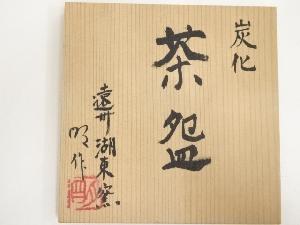 炭化
茶盌
遠州湖東窯
明作